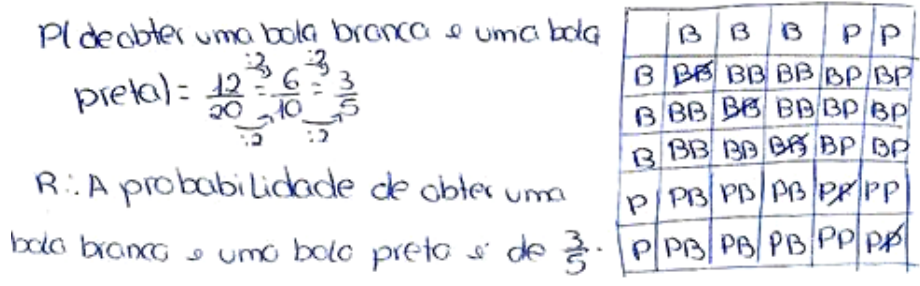 P(de obter uma bola branca e uma bola
preta) = 12/20 = 6/10 = 3/5
:2 :2
:2 :2
R: A probabilidade de obter uma
bola branca e uma bola preta é de 3/5.
B B B P P
B BB BB BB BP BP
B BB BB BB BP BP
B BB BB BB BP BP
P PB PB PB PP PP
P PB PB PB PP PP